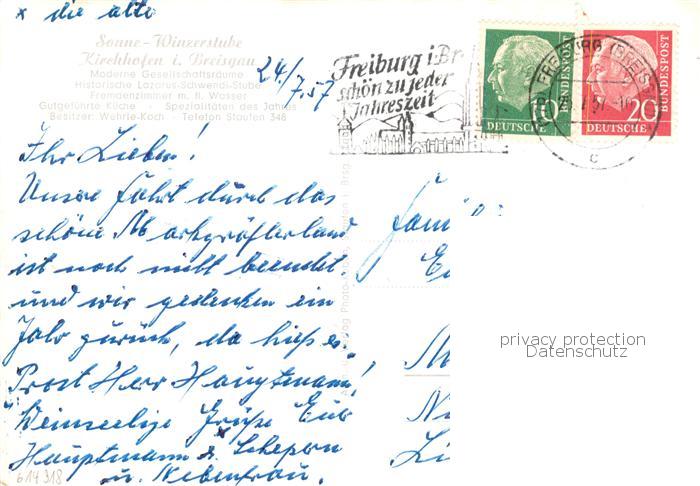 x die alte
Sonne-Winzerstube
Kirchhofen i. Breisgau
Moderne Gesellschaftsräume
Historische Lazarus-Schwendi-Stube
Fremdenzimmer m. fl. Wasser
Gutgeführte Küche - Spezialitäten des Jahres
Besitzer: Wehrle-Koch - Telefon Staufen 348
24./7.57
Freiburg i. Br.
schön zu jeder
Jahreszeit
FREIBURG (BREISGAU)
c
10
DEUTSCHE
BUNDESPOST
20
DEUTSCHE
BUNDESPOST
Ihr Lieben!
Unsre Fahrt durch das
schöne Markgräflerland
ist noch nicht beendet.
und wir gedenken ein
Jahr zurück, da hieß es.
"Prost Herr Hauptmann!"
Weinseelige Grüße Eur
Hauptmann x. Schepern
u. Nebenfrau.
614318
Fami
privacy protection
Datenschutz